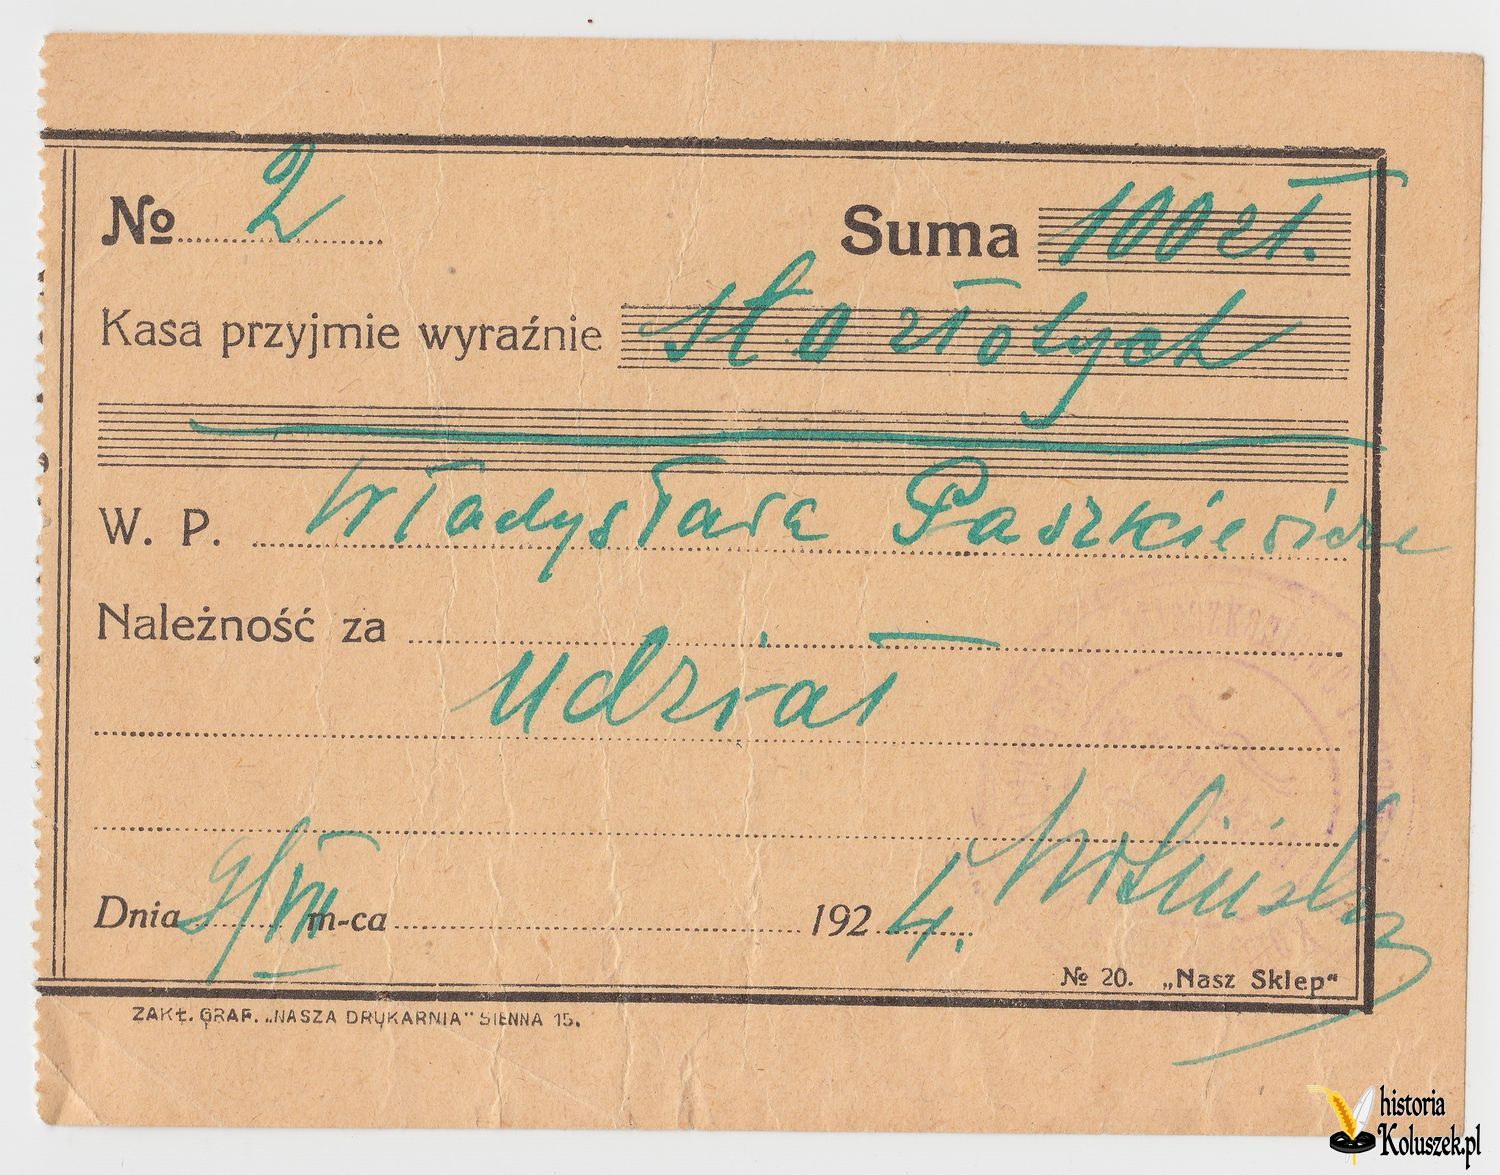 № 2 Suma 100 zł.
Kasa przyjmie wyraźnie sto złotych
W. P. Władysława Paszkiewicza
Należność za
Udział
Dnia 9/VIII m-ca 1924.
№ 20. „Nasz Sklep“
ZAKŁ. GRAF. „NASZA DRUKARNIA“ SIENNA 15.
historia
Koluszek.pl